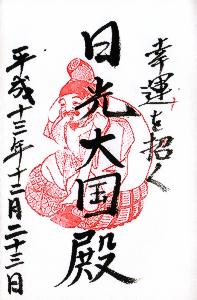 幸運を招く
日光大国殿
平成十三年十二月二十三日